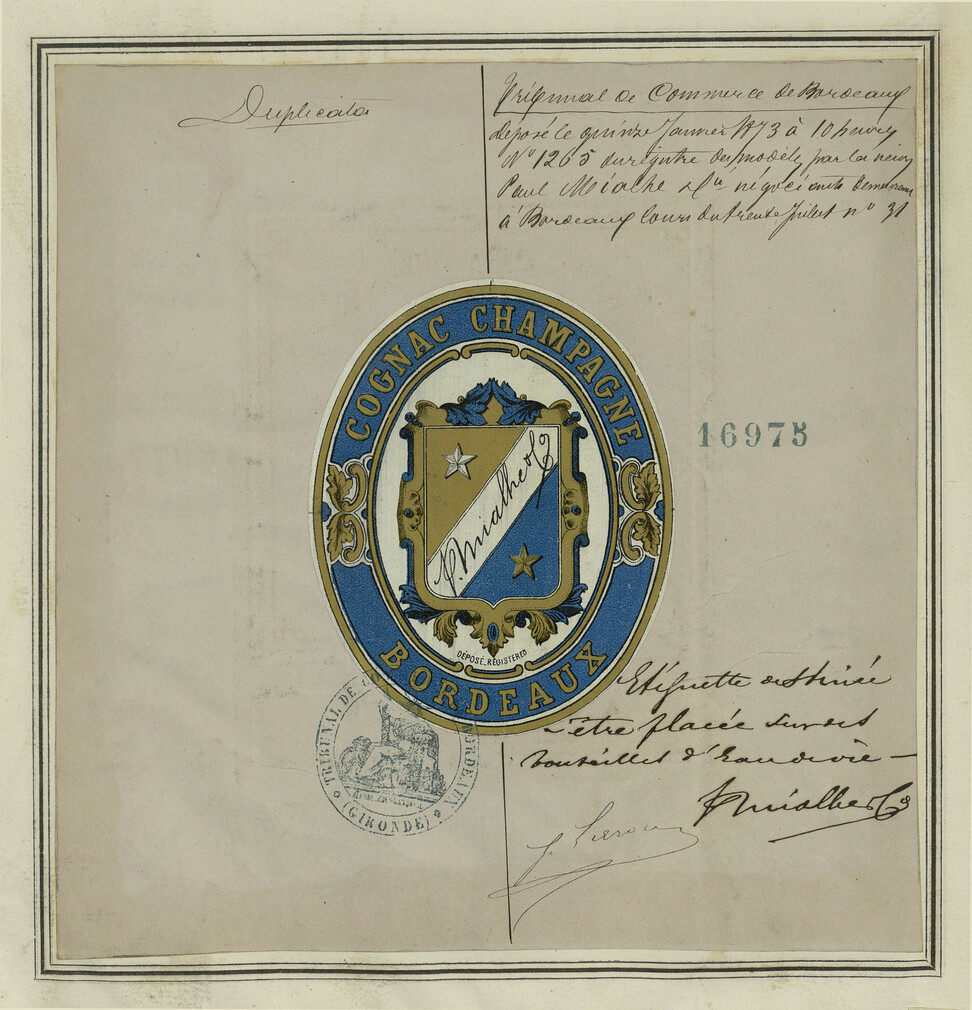 Duplicata
Tribunal de Commerce de Bordeaux
déposé le quinze Janvier 1873 à 10 heures
N° 1265 du registre des modèles par les sieurs
Paul Mialhe & Cie négociants demeurant
à Bordeaux Cours du trente Juillet n° 31
COGNAC CHAMPAGNE
16975
P. Mialhe & Co
DÉPOSÉ_REGISTERED
BORDEAUX
Etiquette destinée
à être placée sur des
bouteilles d'Eau de vie —
P Mialhe & Co
TRIBUNAL DE BORDEAUX
(GIRONDE)